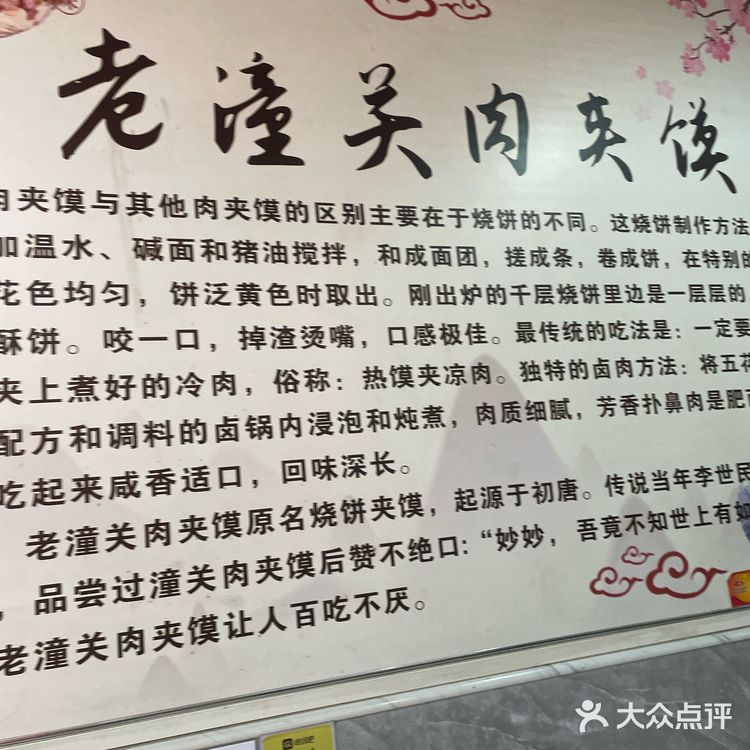 老潼关肉夹馍
肉夹馍与其他肉夹馍的区别主要在于烧饼的不同。这烧饼制作方法
加温水、碱面和猪油搅拌，和成面团，搓成条，卷成饼，在特别的
花色均匀，饼泛黄色时取出。刚出炉的千层烧饼里边是一层层的
酥饼。咬一口，掉渣烫嘴，口感极佳。最传统的吃法是：一定要
夹上煮好的冷肉，俗称：热馍夹凉肉。独特的卤肉方法：将五花
配方和调料的卤锅内浸泡和炖煮，肉质细腻，芳香扑鼻肉是肥而
吃起来咸香适口，回味深长。
老潼关肉夹馍原名烧饼夹馍，起源于初唐。传说当年李世民
，品尝过潼关肉夹馍后赞不绝口：“妙妙，吾竟不知世上有如
老潼关肉夹馍让人百吃不厌。
大众点评